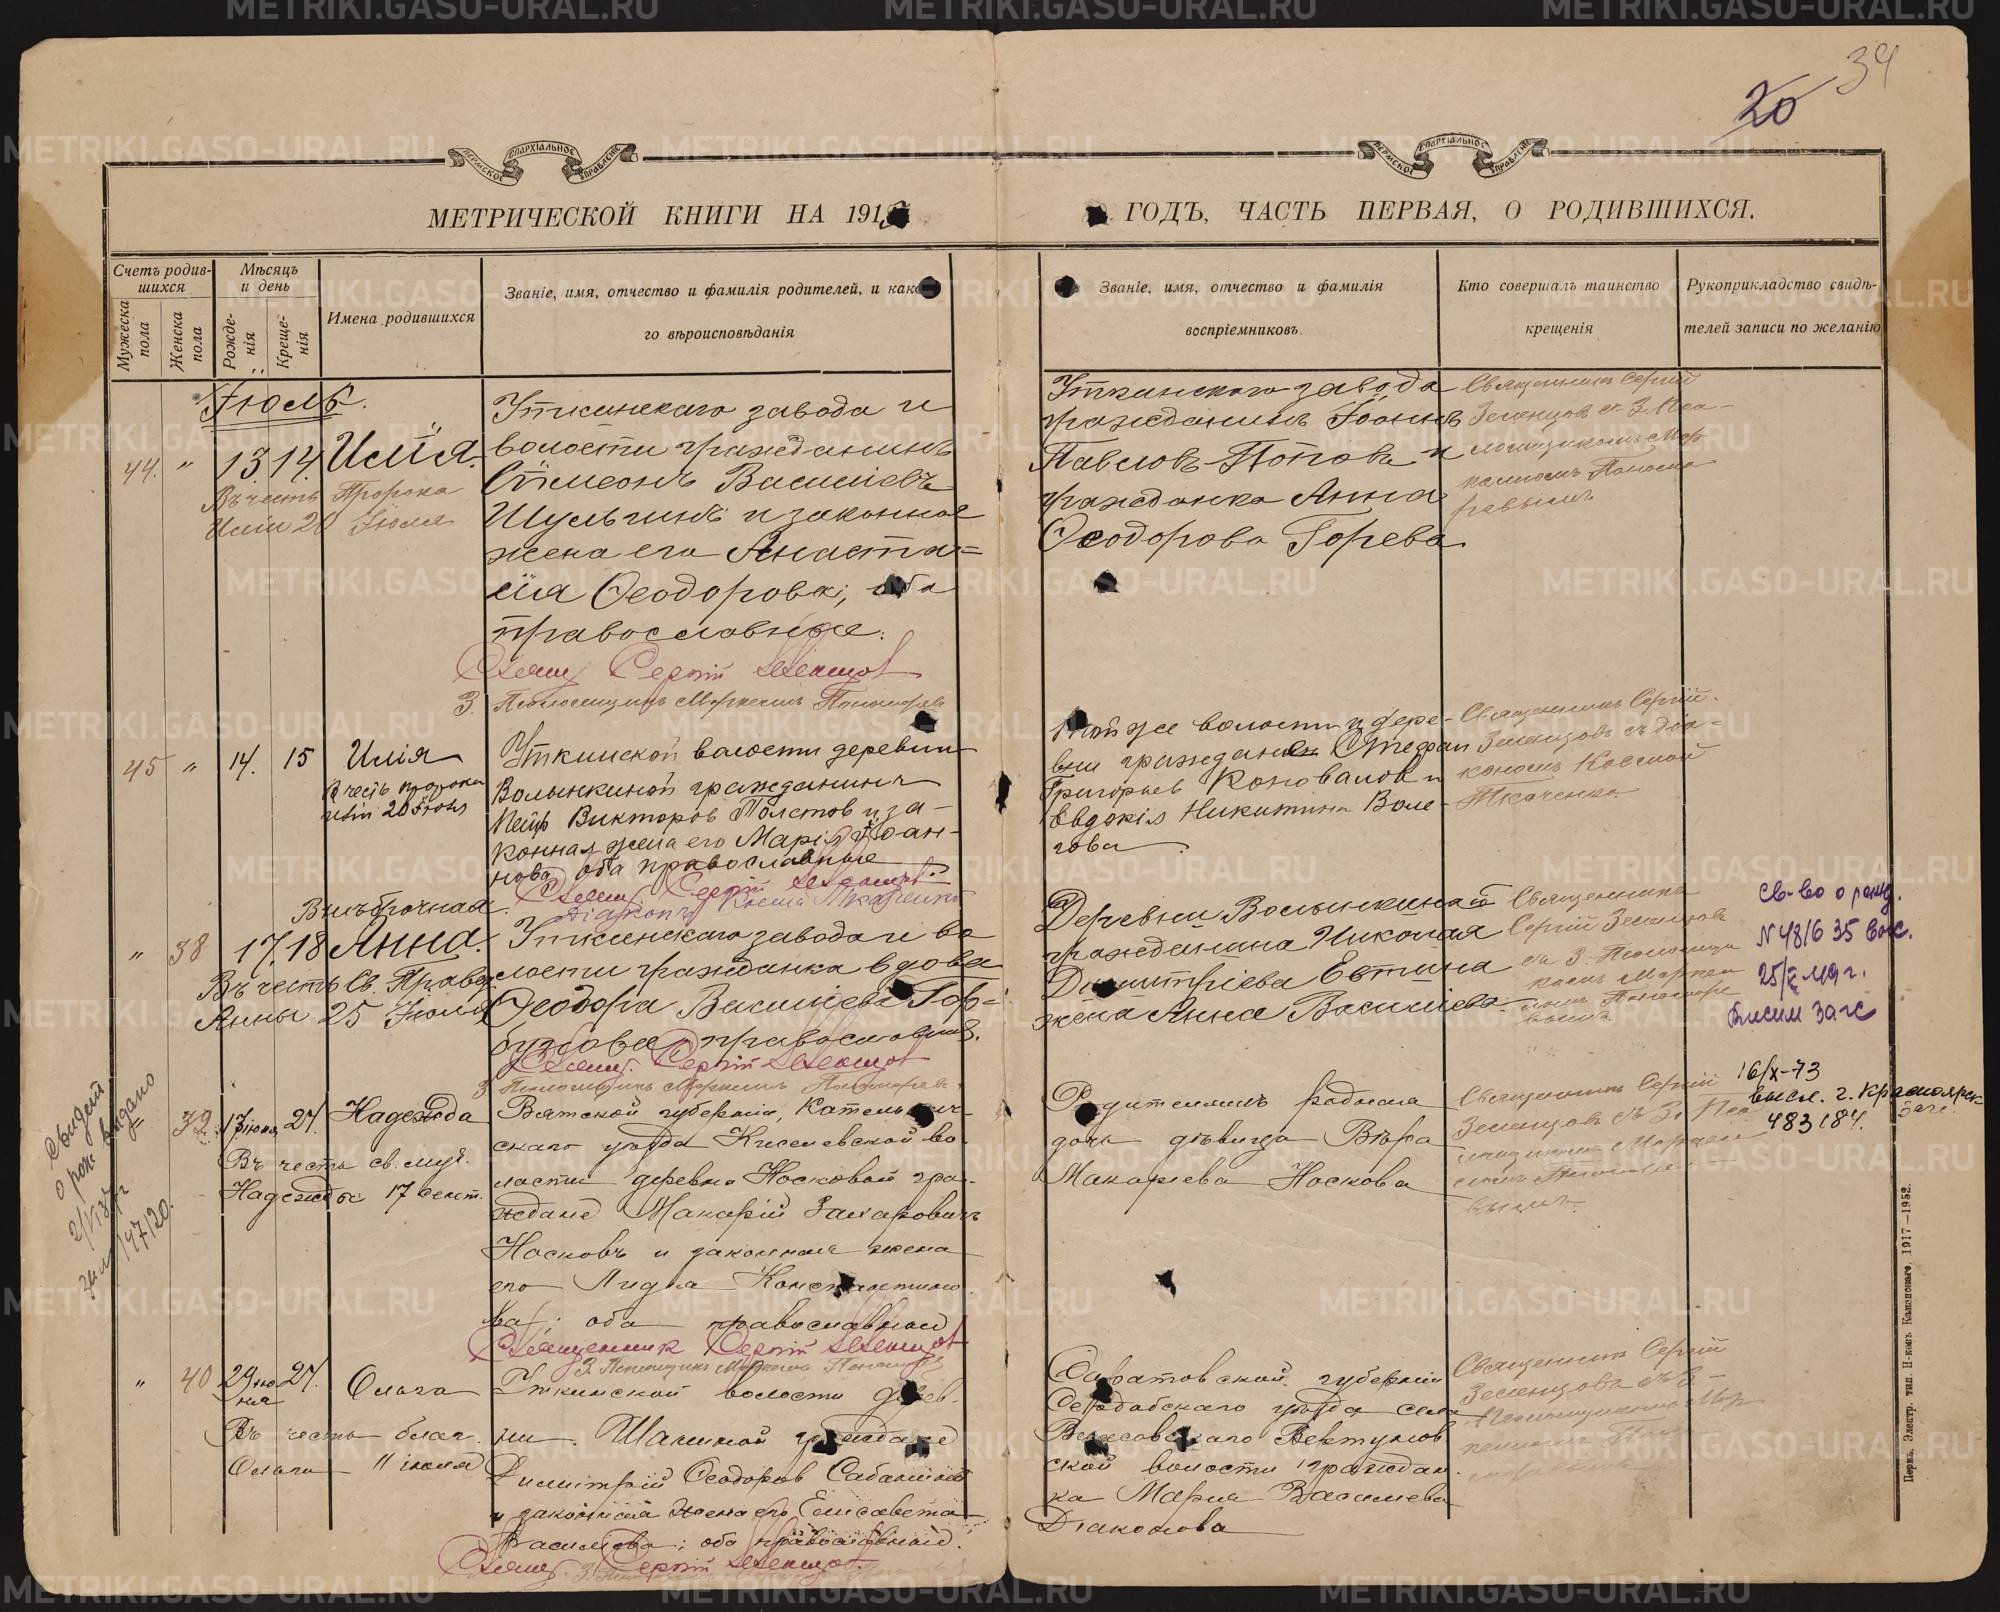 34
20
ПЕРМСКОЕ ЕПАРХІАЛЬНОЕ УПРАВЛЕНІЕ
ПЕРМСКОЕ ЕПАРХІАЛЬНОЕ УПРАВЛЕНІЕ
МЕТРИЧЕСКОЙ КНИГИ НА 191
ГОДЪ, ЧАСТЬ ПЕРВАЯ, О РОДИВШИХСЯ.
Счетъ родив-
шихся
Мужеска пола
Женска пола
Мѣсяцъ
и день
Рожде-
нія
Креще-
нія
Имена родившихся
Званіе, имя, отчество и фамилія родителей, и како-
го вѣроисповѣданія
Званіе, имя, отчество и фамилія
воспріемниковъ.
Кто совершалъ таинство
крещенія
Рукоприкладство свидѣ-
телей записи по желанію
Іюль.
44. " 13. 14. Илія.
Въ честь Пророка
Иліи 20 Іюля
Уткинскаго завода и
волости гражданинъ
Сѷмеонъ Василіевъ
Шульгинъ и законная
жена его Анаста=
сія Ѳеодорова; оба
православные.
Свящ. Сергій Зеленцов
З. Псаломщикъ Маркелъ Пономарев
Уткинскаго завода
гражданинъ Іоаннъ
Павловъ Попов и
гражданка Анна
Ѳеодорова Горева.
Священникъ Сергій
Зеленцов с З. Пса-
ломщикомъ Мар
келомъ Понома
ревымъ
45 " 14. 15 Илія
В честь пророка
Иліи 20 Іюля
Уткинской волости деревни
Волынкиной гражданинъ
Петр Викторов Толстов и за-
конная жена его Марія Іоан-
нова оба православные
Свящ. Сергій Зеленцов.
Діаконъ Косма Ткаченко
Той же волости и дере-
вни гражданин Стефан
Григорьев Коновалов и
Евдокія Никитина Воле-
гова.
Священникъ Сергій
Зеленцовъ съ діа-
кономъ Космой
Ткаченко.
Внѣбрачная.
" 38 17. 18 Анна.
Въ честь Св. Правед.
Анны 25 Іюля
Уткинскаго завода и во
лости гражданка вдова
Ѳеодора Василіева Гор-
бунова православная.
Свящ. Сергій Зеленцов
З Псаломщикъ Маркелъ Пономарев
Деревни Волынкиной
гражданина Николая
Димитріева Евтина
жена Анна Василіева
Священникъ
Сергій Зеленцов
съ З. Псаломщи
комъ Маркел
ломъ Пономаре
вымъ
Св-во о рожд.
N 4816 35
загс
" 39 17 іюня 27. Надежда
Въ честь св. муч.
Надежды 17 сент.
Вятской губерніи, Котельнич-
скаго уѣзда Киселевской во
лости деревни Носковой гра-
ждане Макарій Захаровичъ
Носковъ и законная жена
его Лидія Константино
ва; оба православные
Священник Сергій Зеленцов
З. Псаломщикъ Маркелъ Пономарев
Родителямъ родная
дочь дѣвица Вѣра
Макаріева Носкова
Священникъ Сергій
Зеленцовъ съ З. Пса
ломщикомъ Маркел
ломъ Пономаре
вымъ.
16/X-73
высл. г. Красноярск
загс
483184.
Свидет
о рож выдано
" 40 29 июня 27. Ольга
Въ честь благ.
Ольги 11 іюля
Уткинской волости дерев.
ни Шалиной граждане
Димитрій Ѳеодоров Сабанин
и законная жена его Елисавета
Василіева; оба православные.
Свящ. Сергій Зеленцов.
Саратовской губерніи
Сердобскаго уѣзда села
Вертунов
ской волости граждан.
ка Марія Васильева
Діаконова
Священникъ Сергій
Зеленцовъ съ З-
Псаломщикомъ Мар
Пермь. Электр. тип. Н-ковъ Каменскаго. 1917.—1952.
METRIKI.GASO-URAL.RU